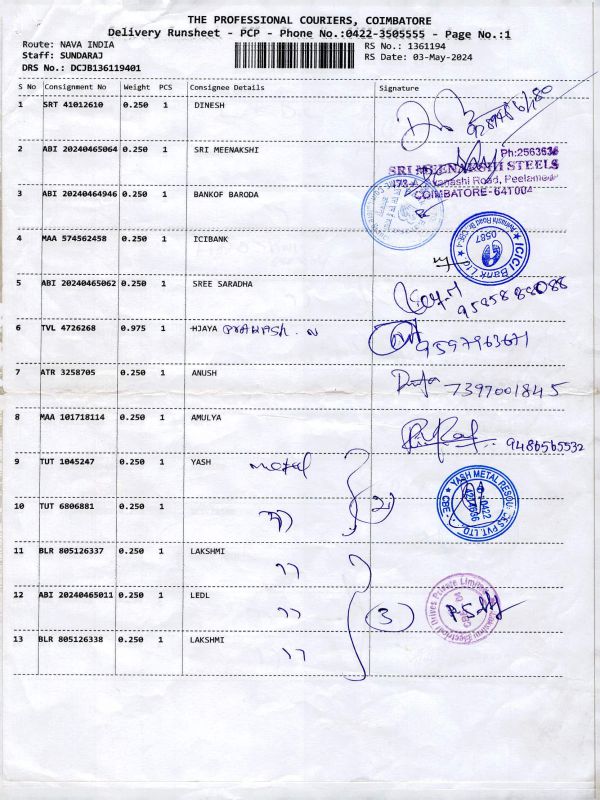 THE PROFESSIONAL COURIERS, COIMBATORE
Delivery Runsheet - PCP - Phone No.:0422-3505555 - Page No.:1
Route: NAVA INDIA
RS No.: 1361194
Staff: SUNDARAJ
RS Date: 03-May-2024
DRS No.: DCJB136119401
S No Consignment No Weight PCS Consignee Details Signature
1 SRT 41012610 0.250 1 DINESH
2 ABI 20240465064 0.250 1 SRI MEENAKSHI
Ph:2563636
SRI MEENAKSHI STEELS
COIMBATORE-641004
3 ABI 20240464946 0.250 1 BANKOF BARODA
4 MAA 574562458 0.250 1 ICIBANK
ICICI Bank Ltd
0587
5 ABI 20240465062 0.250 1 SREE SARADHA
9595888088
6 TVL 4726268 0.975 1 HJAYA PRAKASH. N
9597963671
7 ATR 3258705 0.250 1 ANUSH
7397001845
8 MAA 101718114 0.250 1 AMULYA
9486565532
9 TUT 1045247 0.250 1 YASH metal
10 TUT 6806881 0.250 1
2
11 BLR 805126337 0.250 1 LAKSHMI
12 ABI 20240465011 0.250 1 LEDL
3
13 BLR 805126338 0.250 1 LAKSHMI